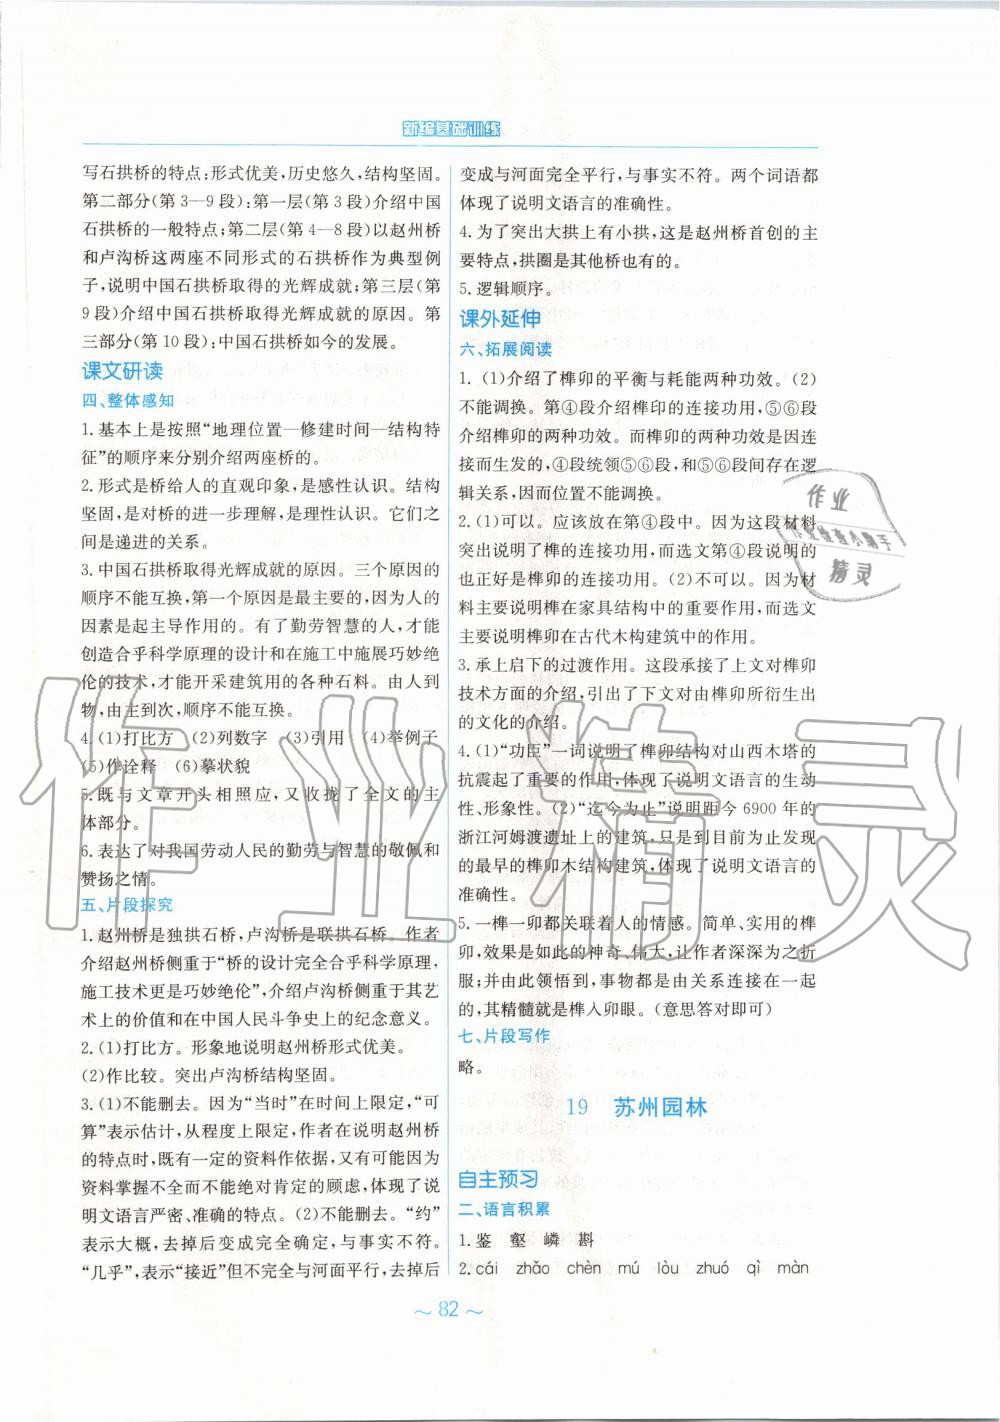 新编基础训练
写石拱桥的特点:形式优美,历史悠久,结构坚固。
第二部分(第 3—9 段):第一层(第 3 段)介绍中国
石拱桥的一般特点;第二层(第 4—8 段)以赵州桥
和卢沟桥这两座不同形式的石拱桥作为典型例
子,说明中国石拱桥取得的光辉成就;第三层(第
9 段)介绍中国石拱桥取得光辉成就的原因。第
三部分(第 10 段):中国石拱桥如今的发展。
课文研读
四、整体感知
1. 基本上是按照“地理位置—修建时间—结构特
征”的顺序来分别介绍两座桥的。
2. 形式是桥给人的直观印象,是感性认识。结构
坚固,是对桥的进一步理解,是理性认识。它们之
间是递进的关系。
3. 中国石拱桥取得光辉成就的原因。三个原因的
顺序不能互换,第一个原因是最主要的,因为人的
因素是起主导作用的。有了勤劳智慧的人,才能
创造合乎科学原理的设计和在施工中施展巧妙绝
伦的技术,才能开采建筑用的各种石料。由人到
物,由主到次,顺序不能互换。
4. (1)打比方 (2)列数字 (3)引用 (4)举例子
(5)作诠释 (6)摹状貌
5. 既与文章开头相照应,又收拢了全文的主
体部分。
6. 表达了对我国劳动人民的勤劳与智慧的敬佩和
赞扬之情。
五、片段探究
1. 赵州桥是独拱石桥,卢沟桥是联拱石桥。作者
介绍赵州桥侧重于“桥的设计完全合乎科学原理,
施工技术更是巧妙绝伦”,介绍卢沟桥侧重于其艺
术上的价值和在中国人民斗争史上的纪念意义。
2. (1)打比方。形象地说明赵州桥形式优美。
(2)作比较。突出卢沟桥结构坚固。
3. (1)不能删去。因为“当时”在时间上限定,“可
算”表示估计,从程度上限定,作者在说明赵州桥
的特点时,既有一定的资料作依据,又有可能因为
资料掌握不全而不能绝对肯定的顾虑,体现了说
明文语言严密、准确的特点。(2)不能删去。“约”
表示大概,去掉后变成完全确定,与事实不符。
“几乎”,表示“接近”但不完全与河面平行,去掉后
变成与河面完全平行,与事实不符。两个词语都
体现了说明文语言的准确性。
4. 为了突出大拱上有小拱,这是赵州桥首创的主
要特点,拱圈是其他桥也有的。
5. 逻辑顺序。
课外延伸
六、拓展阅读
1. (1)介绍了榫卯的平衡与耗能两种功效。(2)
不能调换。第④段介绍榫印的连接功用,⑤⑥段
介绍榫卯的两种功效。而榫卯的两种功效是因连
接而生发的,④段统领⑤⑥段,与⑤⑥段间存在逻
辑关系,因而位置不能调换。
2. (1)可以。应该放在第④段中。因为这段材料
突出说明了榫的连接功用,而选文第④段说明的
也正好是榫卯的连接功用。(2)不可以。因为材
料主要说明榫在家具结构中的重要作用,而选文
主要说明榫卯在古代木构建筑中的作用。
3. 承上启下的过渡作用。这段承接了上文对榫卯
技术方面的介绍,引出了下文对由榫卯所衍生出
的文化的介绍。
4. (1)“功臣”一词说明了榫卯结构对山西木塔的
抗震起了重要的作用,体现了说明文语言的生动
性、形象性。(2)“迄今为止”说明距今 6900 年的
浙江河姆渡遗址上的建筑,只是到目前为止发现
的最早的榫卯木结构建筑,体现了说明文语言的
准确性。
5. 一榫一卯都关联着人的情感。简单、实用的榫
卯,效果是如此的神奇、伟大,让作者深深为之折
服;并由此领悟到,事物都是由关系连接在一起
的,其精髓就是榫入卯眼。(意思答对即可)
七、片段写作
略。
19 苏州园林
自主预习
二、语言积累
1. 鉴 壑 嶙 斟
2. cái zhǎo chèn mú lòu zhuó qì màn
~ 82 ~
作业
作业检查小帮手
精灵
作业精灵